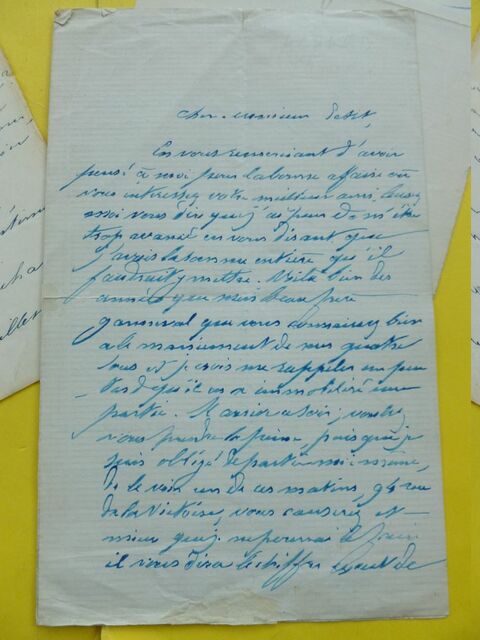 Cher Monsieur Petit,
En vous remerciant d'avoir
pensé à moi pour la bonne affaire où
vous intéressez votre meilleur ami, laissez
moi vous dire que j'ai peur de m'être
trop avancé en vous disant que
j'avais la somme entière qu'il
faudrait y mettre. Voilà bien des
années que mon beau père
que vous connaissez bien
a le maniement de nos quatre
sous et je crois me rappeler un peu
tard qu'il en a immobilisé une
partie. M
vous prendre la peine, puisque je
suis obligé de partir moi-même,
de le voir un de ces matins, 94 rue
de la Victoire, vous causerez et
mieux que je ne pourrai le faire
il vous dira le chiffre exact de